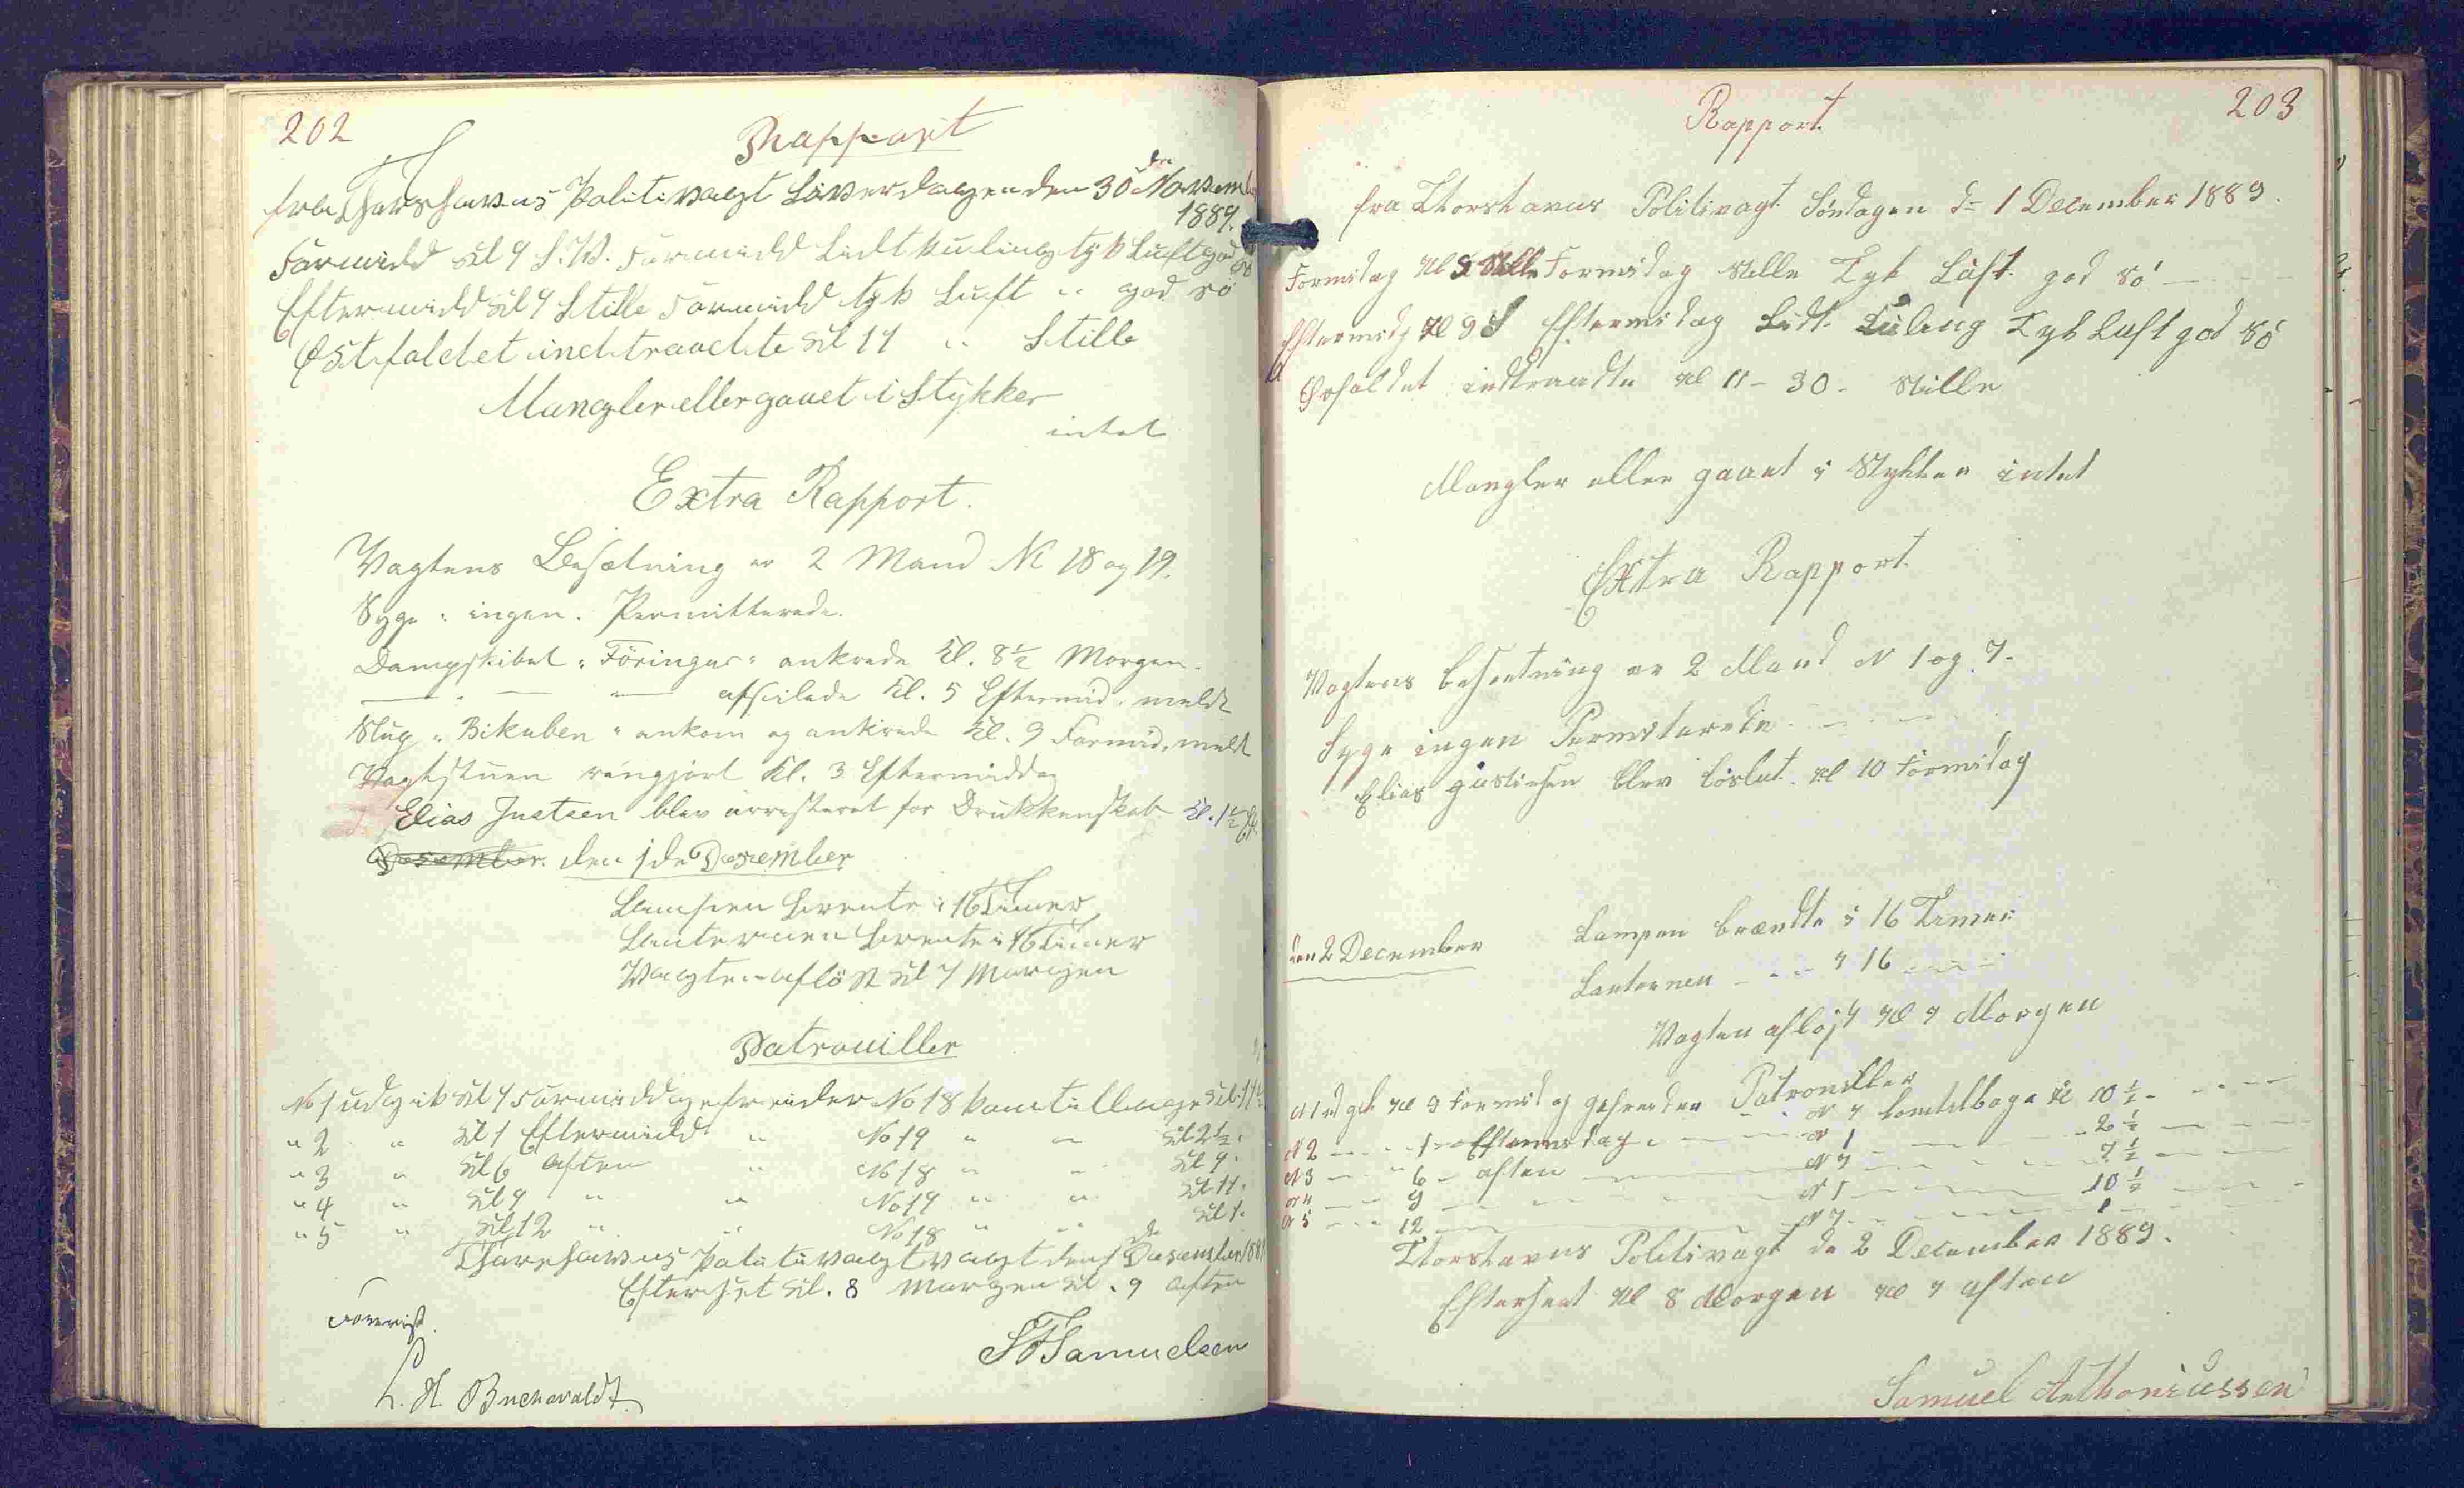 202
Rapport
fra Thorshavns Politivagt Löverdagen den 30 den Novemb
1889.
Formidd Kl 9 S.W. Formidd Lidt Kuling tyk Luft god Sö
Eftermidd Kl 9 Stille Formidd tyk Luft " god sö
Østfaldet indtraadte Kl 11 " Stille
Mangler eller gaaet i Stykker
intet
Extra Rapport.
Vagtens Besætning er 2 Mand No 18 og 19.
Syge : ingen. Permitterede.
Dampskibet "Föringur" ankrede Kl. 8½ Morgen.
— . — — afseilede Kl. 5 Eftermid. meldt
Slup "Bikuben" ankom og ankrede Kl. 9 Formid. meldt
Vagtstuen rengjort Kl. 3 Eftermiddag
Elias Justsen blev arresteret for Drukkenskab Kl. 1½
Desember. den 1 de Desember
Lampen brente i 16 Timer
Lanternen brente i 16 Timer
Vagten aflöst Kl 7 Morgen
Patrouiller
No 1 udgik Kl 9 Formiddag efreider No 18 kom tilbage Kl. 11
" 2 " Kl 1 Eftermidd " No 19 " " Kl 2½.
" 3 " Kl 6 aften " No 18 " " Kl 7.
" 4 " Kl 9 " " No 19 " " Kl 11.
" 5 " Kl 12 " " No 18 " " Kl 1.
Thorshavns Politivagt vagt den 1 de Desember 188
Efterset Kl. 8 Morgen Kl. 9 Aften
Forevist.
SFSamuelsen
L. H. Buchwaldt
203
Rapport.
fra Thorshavns Politivagt Söndagen d= 1 December 1889.
Formidag Kl 9 Stille Formidag Stille Tyk Luft god Sö
Eftermidg Kl 9 S Eftermidag Lidt Kuling Tyk Luft god Sö
Østfaldet indtraadte Kl 11 - 30 - Stille
Mangler eller gaaet i Stykker intet
Extra Rapport.
Vagtens besætning er 2 Mand N 1 og 7.
Syge ingen Permiterede
Elias Justinsen blev löslat Kl 10 Formidag
den 2 December
Lampen brændte i 16 Timer
Lanternen - - - i 16 - - -
Vagten aflöst Kl 7 Morgen
Patrouiller
N 1 ud gik Kl 9 Formidag gefreider N 7 kom tilbage Kl 10½ - - -
N 2 - - - 1 - Eftermidag - - - N 1 - - - 2½ - -
N 3 - - " 6 - aften - - - N 7 - - - 7½ - -
N 4 - - 9 - - - N 1 - - - 10½ - - -
N 5 - - - 12 - - - N 7 - - - 1 - -
Thorshavns Politivagt de 2 December 1889.
Efterseet Kl 8 Morgen Kl 7 aften
Samuel Anthoniussen